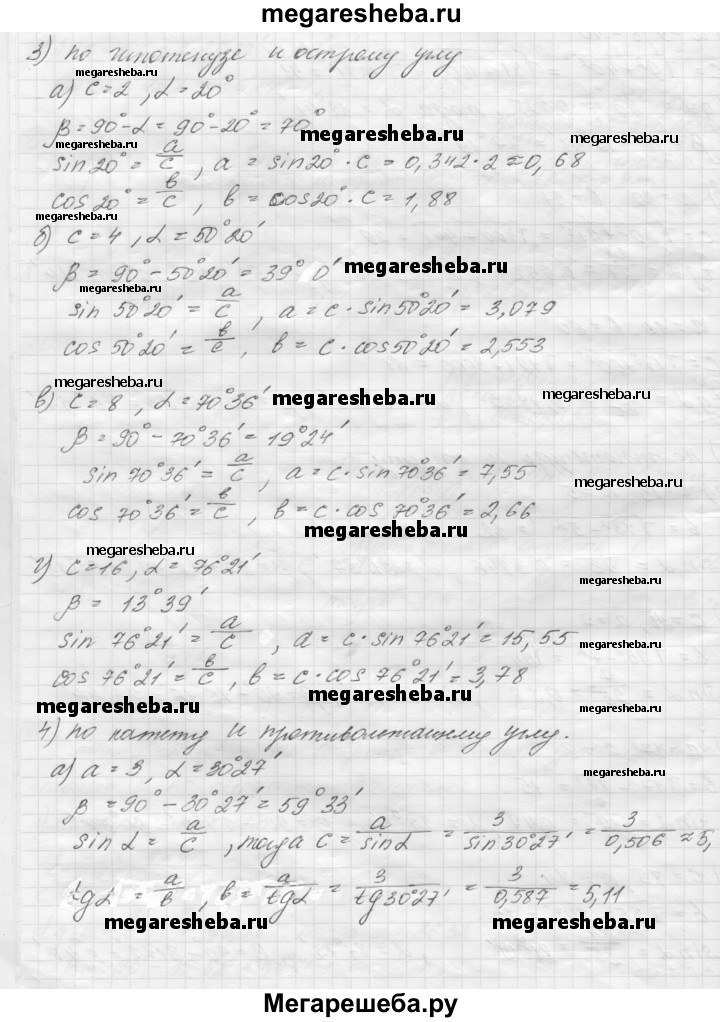 megaresheba.ru
3) по гипотенузе и острому углу
megaresheba.ru
а) c=2 , α=20°
β=90°-α=90°-20°=70° megaresheba.ru megaresheba.ru
megaresheba.ru
sin20°=a/c , a = sin20°·c = 0,342·2≈0,68
cos20°=в/c , в = cos20°·c=1,88
б) c=4 , α=50°20′
β=90°-50°20′=39° 0′ megaresheba.ru
megaresheba.ru
sin 50°20′=a/c , a=c·sin50°20′=3,079
cos 50°20′=в/c , в=c·cos50°20′=2,553
megaresheba.ru
в) c=8 , α=70°36′ megaresheba.ru megaresheba.ru
β=90°-70°36′=19°24′
sin 70°36′=a/c , a=c·sin70°36′=7,55
megaresheba.ru
cos 70°36′=в/c , в=c·cos 70°36′=2,66
megaresheba.ru
megaresheba.ru
г) c=16 , α=76°21′
megaresheba.ru
β= 13°39′
sin 76°21′=a/c , a=c·sin 76°21′=15,55
megaresheba.ru
cos 76°21′=в/c , в=c·cos 76°21′=3,78
megaresheba.ru megaresheba.ru megaresheba.ru
4) по катету и противолежащему углу.
а) a=3 , α=30°27′
megaresheba.ru
β=90°-30°27′=59°33′
sin α= a/c , тогда c=a/sinα = 3/sin30°27′ = 3/0,506 ≈5,
tgα = a/в , в= a/tgα = 3/tg30°27′ = 3/0,587 =5,11
megaresheba.ru megaresheba.ru
Мегарешеба.ру